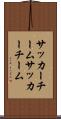 サッカーチ
ームサッカ
ーチーム